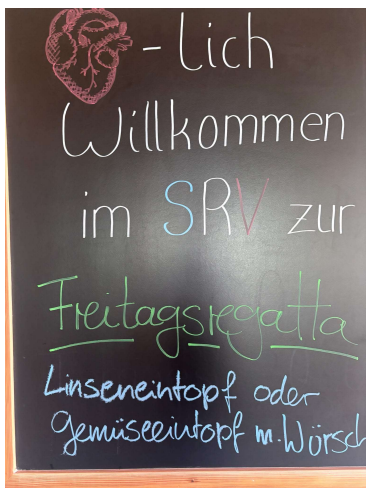 -lich
Willkommen
im SRV zur
Freitagsregatta
Linseneintopf oder
Gemüseeintopf m. Würsch